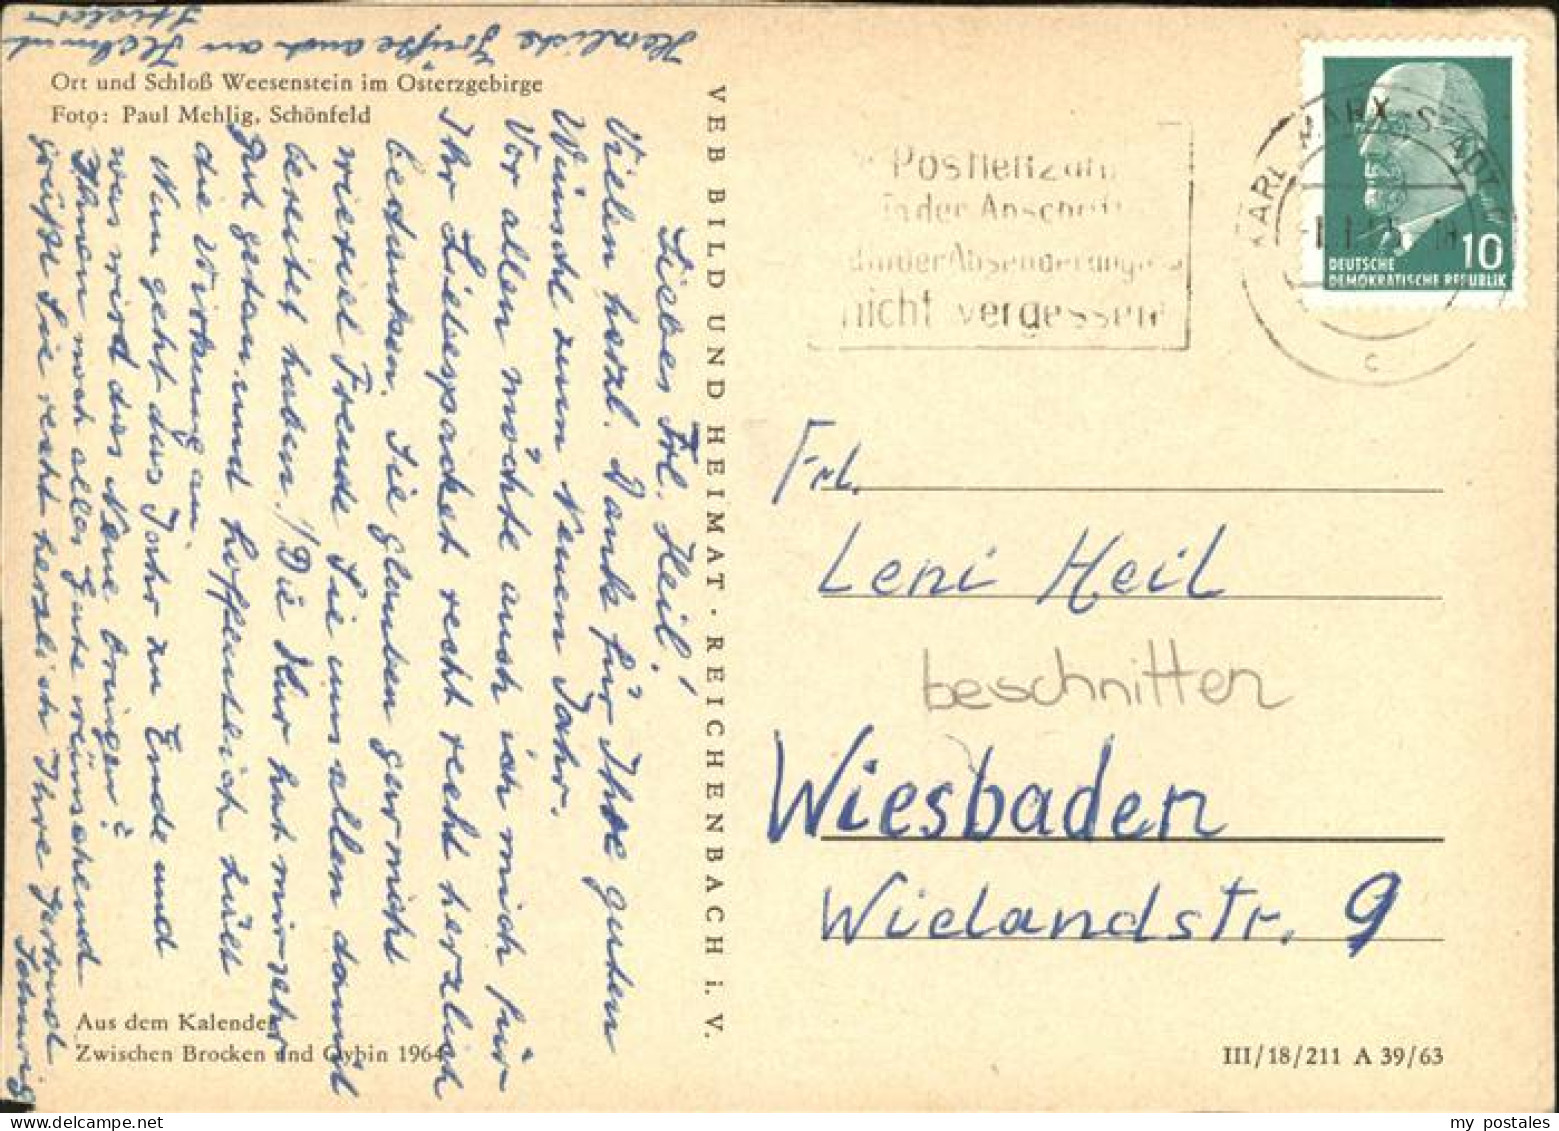 Herzliche Grüße auch an Helmut
Ort und Schloß Weesenstein im Osterzgebirge
Foto: Paul Mehlig, Schönfeld
Liebes Frl. Heil!
Vielen herzl. Dank für Ihre guten
Wünsche zum Neuen Jahr.
Vor allen möchte auch ich mich für
Ihr Liebespacket recht recht herzlich
bedanken. Sie glauben gar nicht
wieviel Freude Sie uns allen damit
bereitet haben! Die Kur hat mir sehr
gut getan und hoffentlich hält
die Wirkung an.
Nun geht das Jahr zu Ende und
was wird das Neue bringen?
Ihnen noch alles Gute wünschend
grüßt Sie recht herzlich Ihre Gertraud
VEB BILD UND HEIMAT · REICHENBACH i. V.
Aus dem Kalender
Zwischen Brocken und Oybin 1964
Postleitzahl
in der Anschrift
und in der Absenderangabe
nicht vergessen
KARL-MARX-STADT
c
10
DEUTSCHE
DEMOKRATISCHE REPUBLIK
Frl.
Leni Heil
beschnitten
Wiesbaden
Wielandstr. 9
III/18/211 A 39/63
my postales